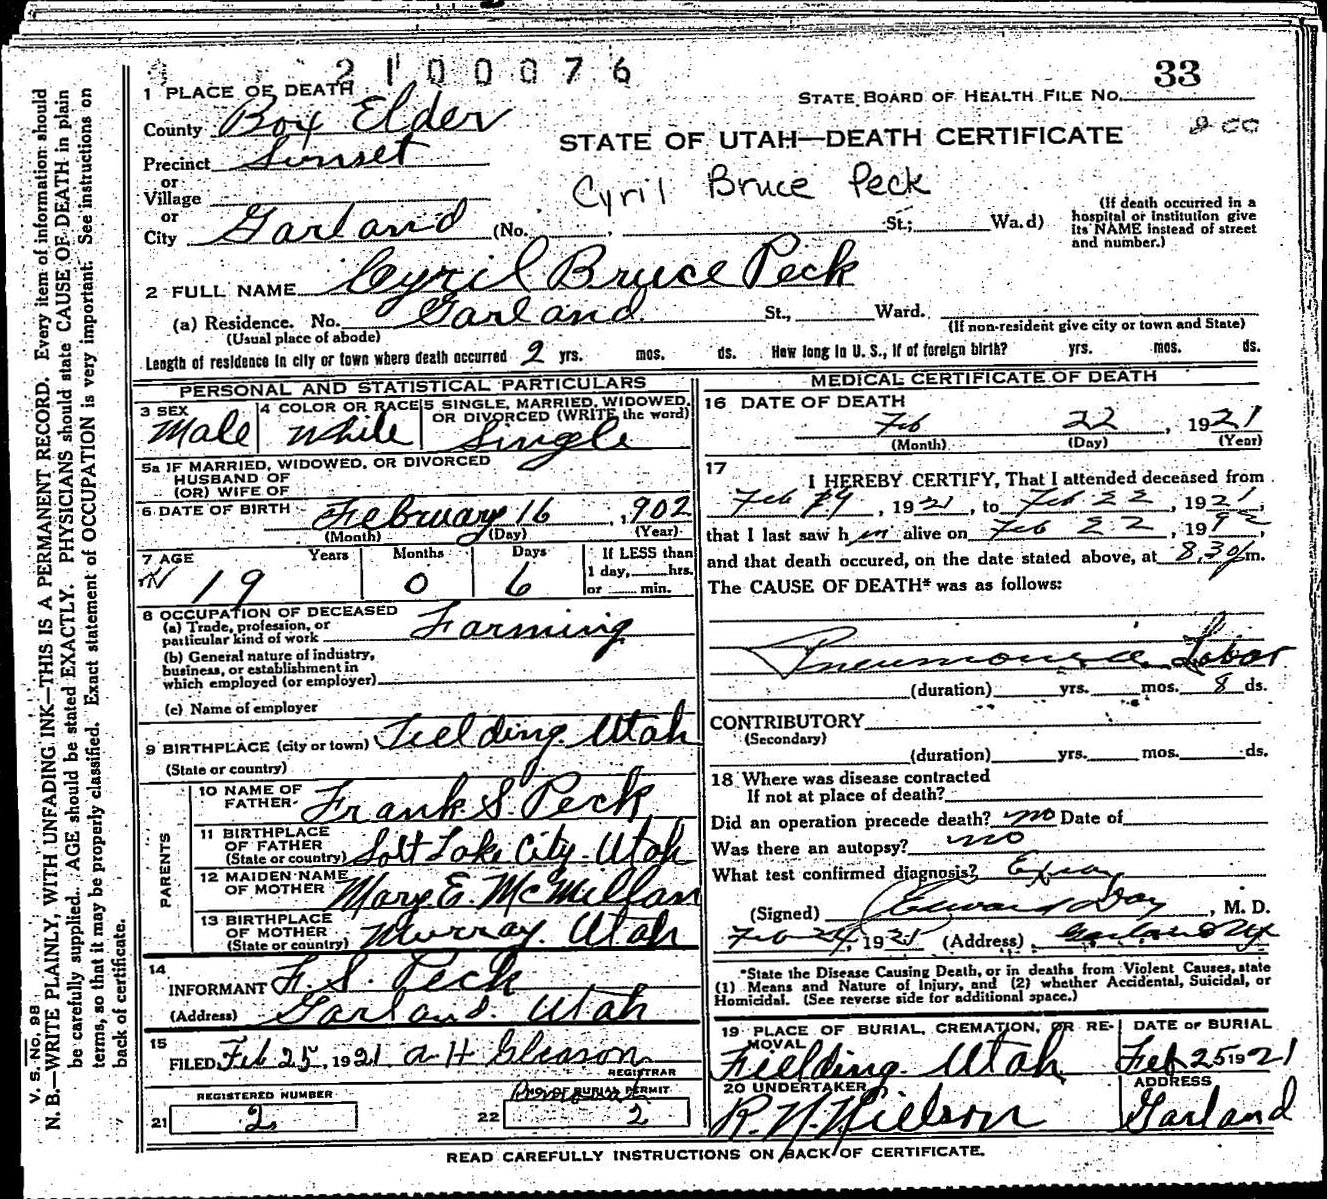 2100076
33
1 PLACE OF DEATH
STATE BOARD OF HEALTH FILE No.
County Box Elder
STATE OF UTAH—DEATH CERTIFICATE
Precinct Sunset
or
Village
Cyril Bruce Peck
or
City Garland (No. St.; Wa.d)
(If death occurred in a
hospital or institution give
its NAME instead of street
and number.)
2 FULL NAME Cyril Bruce Peck
(a) Residence. No. Garland St., Ward.
(Usual place of abode)
(If non-resident give city or town and State)
Length of residence in city or town where death occurred 2 yrs. mos. ds. How long in U. S., if of foreign birth? yrs. mos. ds.
PERSONAL AND STATISTICAL PARTICULARS
3 SEX
Male
4 COLOR OR RACE
White
5 SINGLE, MARRIED, WIDOWED,
OR DIVORCED (WRITE the word)
Single
5a IF MARRIED, WIDOWED, OR DIVORCED
HUSBAND OF
(OR) WIFE OF
6 DATE OF BIRTH February 16, 902
(Month) (Day) (Year)
7 AGE Years Months Days If LESS than
1 day, hrs.
or min.
19 0 6
8 OCCUPATION OF DECEASED
(a) Trade, profession, or
particular kind of work Farming
(b) General nature of industry,
business, or establishment in
which employed (or employer)
(c) Name of employer
9 BIRTHPLACE (city or town) Fielding Utah
(State or country)
PARENTS
10 NAME OF
FATHER Frank S. Peck
11 BIRTHPLACE
OF FATHER
(State or country) Salt Lake City. Utah
12 MAIDEN NAME
OF MOTHER Mary E. McMillan
13 BIRTHPLACE
OF MOTHER
(State or country) Murray. Utah
14
INFORMANT F. S. Peck
(Address) Garland. Utah
15
FILED Feb 25, 1921 A H Gleason
REGISTRAR
REGISTERED NUMBER
21 2
NO. OF BURIAL PERMIT
22 2
MEDICAL CERTIFICATE OF DEATH
16 DATE OF DEATH
Feb 22, 1921
(Month) (Day) (Year)
17
I HEREBY CERTIFY, That I attended deceased from
Feb 19, 1921, to Feb 22, 1921,
that I last saw him alive on Feb 22, 1992,
and that death occured, on the date stated above, at 8.30 pm.
The CAUSE OF DEATH* was as follows:
Pneumonia Lobar
(duration) yrs. mos. 8 ds.
CONTRIBUTORY
(Secondary)
(duration) yrs. mos. ds.
18 Where was disease contracted
If not at place of death?
Did an operation precede death? no Date of
Was there an autopsy? no
What test confirmed diagnosis?
(Signed) Edward Day, M. D.
Feb 24, 1921 (Address) Garland Ut
*State the Disease Causing Death, or in deaths from Violent Causes, state
(1) Means and Nature of Injury, and (2) whether Accidental, Suicidal, or
Homicidal. (See reverse side for additional space.)
19 PLACE OF BURIAL, CREMATION, OR RE-
MOVAL
Fielding. Utah
DATE OF BURIAL
Feb 25 1921
20 UNDERTAKER
R. N. Nielson
ADDRESS
Garland
READ CAREFULLY INSTRUCTIONS ON BACK OF CERTIFICATE.
V. S. No. 98
N. B.—WRITE PLAINLY, WITH UNFADING INK—THIS IS A PERMANENT RECORD. Every item of information should
be carefully supplied. AGE should be stated EXACTLY. PHYSICIANS should state CAUSE OF DEATH in plain
terms, so that it may be properly classified. Exact statement of OCCUPATION is very important. See instructions on
back of certificate.